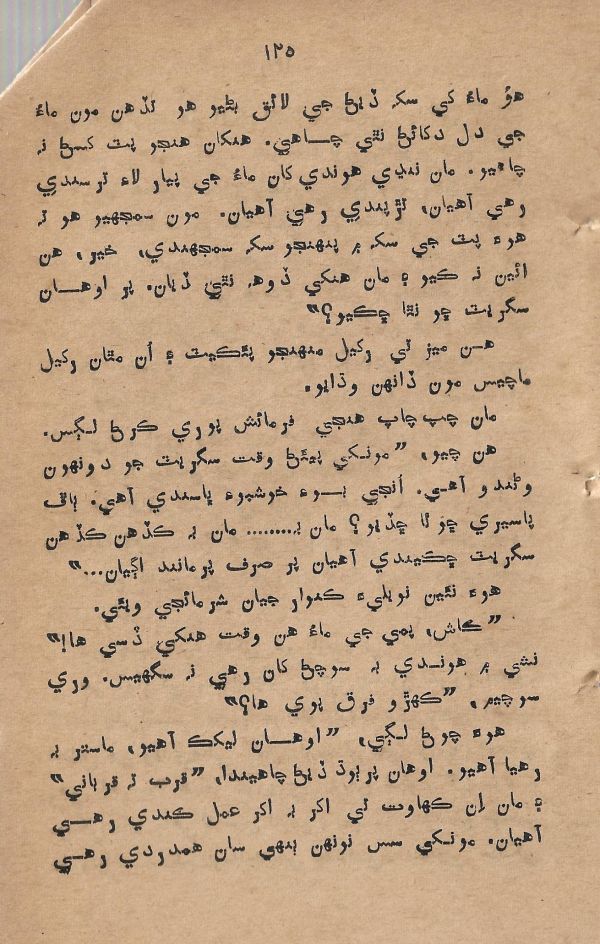 ١٢٥
هوُ ماءُ کي سک ڏيڻ جي لائق بڻيو هو تڏهن مون ماءُ
جي دل دکائڻ نٿي چاهي. هنکان هنجو پٽ کسڻ نہ
چاهيو. مان ننڍي هوندي کان ماءُ جي پيار لاءِ ترسندي
رهي آهيان، تڙپندي رهي آهيان. مون سمجهيو هو تہ
هوءَ پٽ جي سک ۾ پنهنجو سک سمجهندي، خير، هن
ائين نہ ڪيو ۽ مان هنکي ڏوهہ نٿي ڏيان. پر اوهان
سگريٽ ڇو نٿا ڇڪيو؟"
هن ميز تي رکيل منهنجو پئڪيٽ ۽ اُن مٿان رکيل
ماچيس مون ڏانهن وڌايو.
مان چپ چاپ هنجي فرمائش پوري ڪرڻ لڳس.
هن چيو، "مونکي پيئڻ وقت سگريٽ جو دونهون
وڻندو آهي. اُنجي بوءِ خوشبوءِ ڀاسندي آهي. باقي
پاسيري ڇو ٿا ڇڏيو؟ مان بہ........ مان بہ ڪڏهن ڪڏهن
سگريٽ ڇڪيندي آهيان پر صرف پرمانند اڳيان..."
هوءَ نئين نويليءَ ڪنوار جيان شرمائجي ويئي.
"ڪاش، پمي جي ماءُ هن وقت هنکي ڏسي ها!"
نشي ۾ هوندي بہ سوچڻ کان رهي نہ سگهيس. وري
سوچيم، "ڪهڙو فرق پوي ها؟"
هوءَ چوڻ لڳي، "اوهان ليکڪ آهيو، ماستر بہ
رهيا آهيو. اوهان پرٻوڌ ڏيڻ چاهيندا، "قرب تہ قرباني"
۽ مان اِن ڪهاوت تي اکر بہ اکر عمل ڪندي رهي
آهيان. مونکي سس نونهن ٻنهي سان همدردي رهي